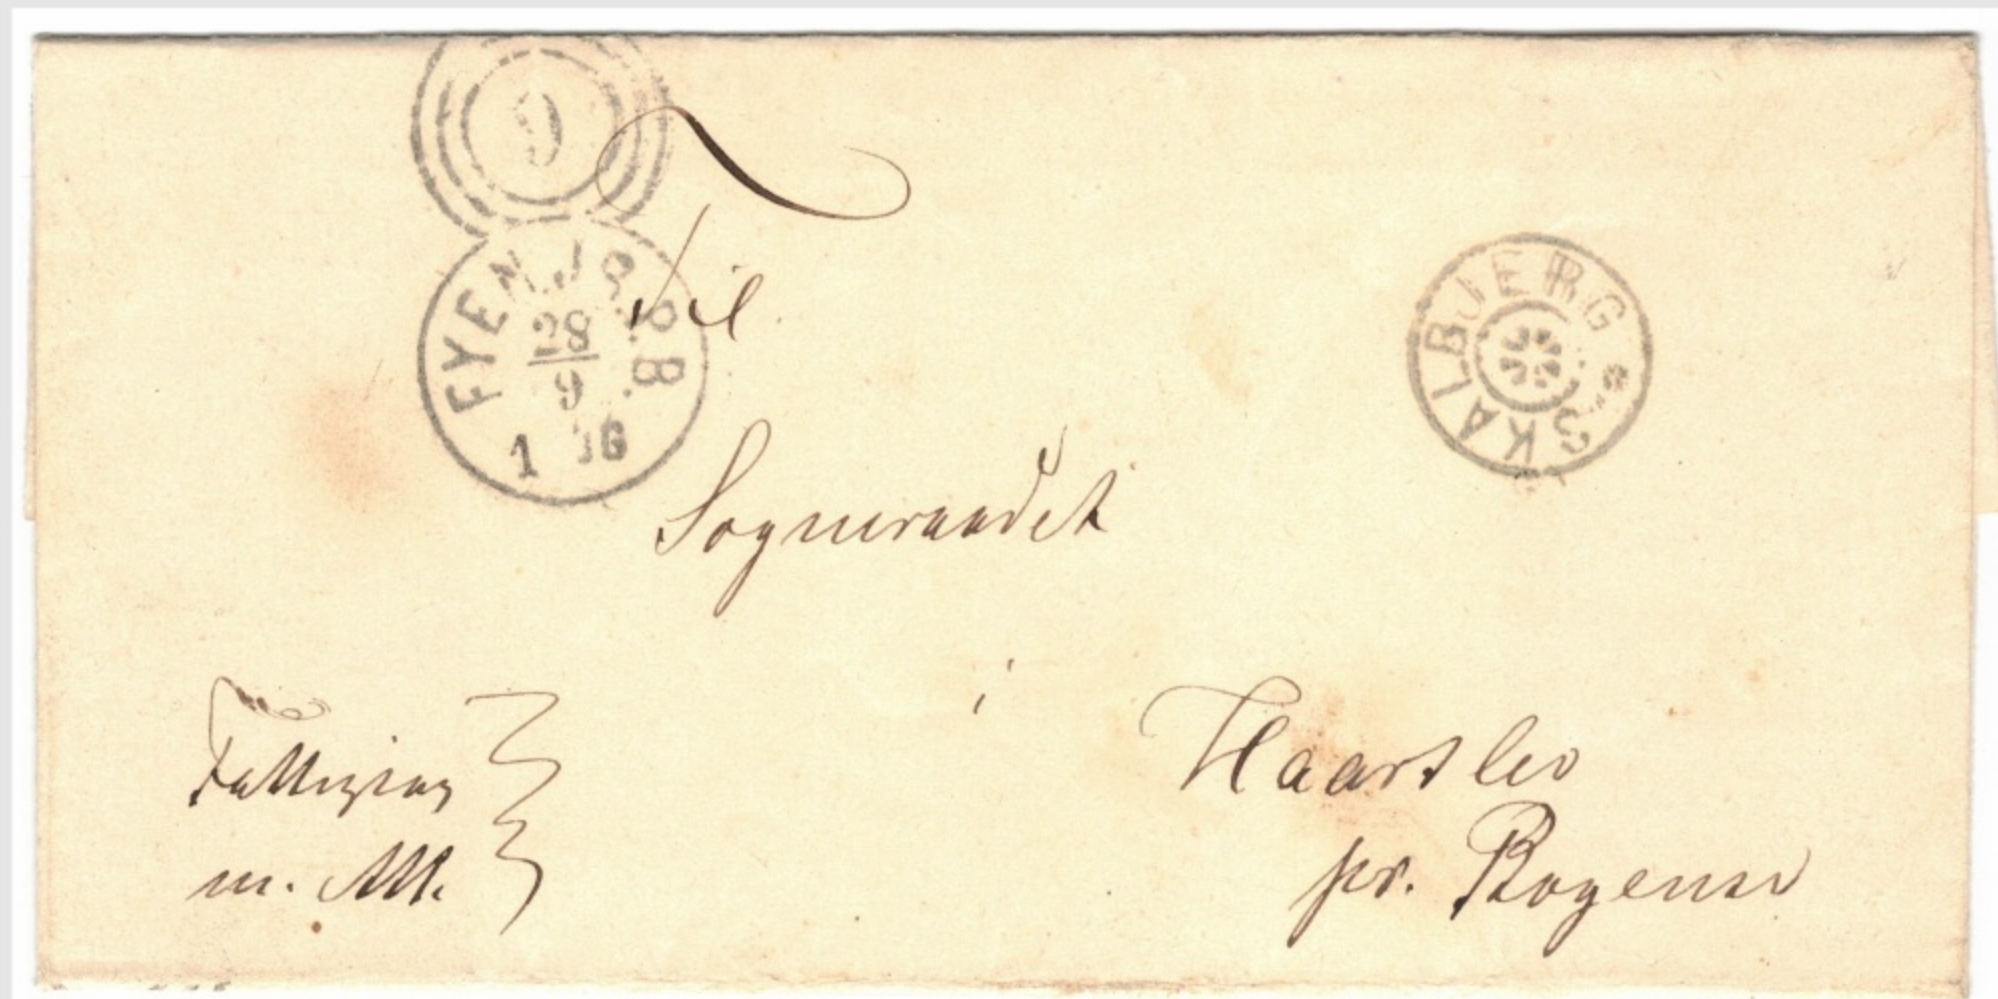 9
FYEN JB P B
28
9
1 
Til
SKALBJERG
Sogneraadet
i
Haarslev
pr. Bogense
Fattigsag
m.